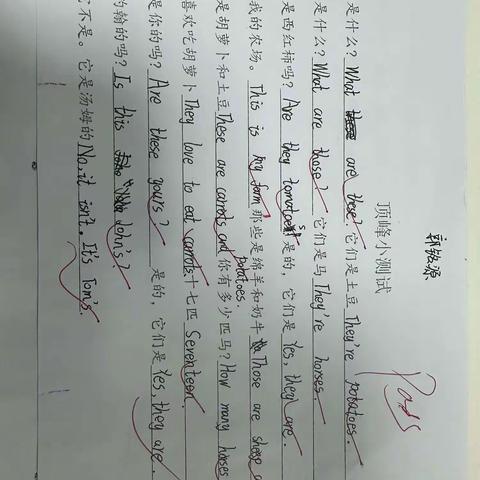 顶峰小测试
郭铭源
是什么? What are these? 它们是土豆 They're potatoes.
是什么? What are those? 它们是马 They're horses.
是西红柿吗? Are they tomatoes 是的，它们是 Yes, they are.
我的农场。 This is my farm 那些是绵羊和奶牛 Those are sheep
是胡萝卜和土豆 These are carrots and potatoes. 你有多少匹马? How many horses
喜欢吃胡萝卜 They love to eat carrots. 十七匹 Seventeen.
是你的吗? Are these yours? 是的，它们是 Yes, they are.
约翰的吗? Is this John's?
不是。它是汤姆的 No, it isn't. It's Tom's.
Pass